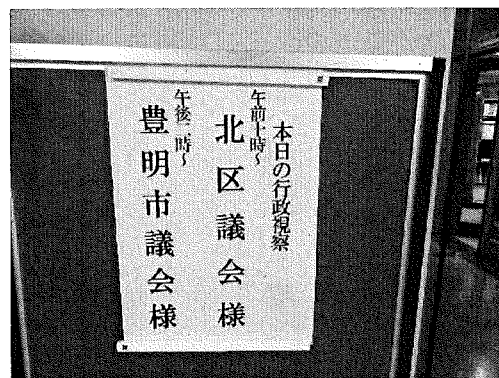 本日の行政視察
午前十時～
北区議会様
午後二時～
豊明市議会様